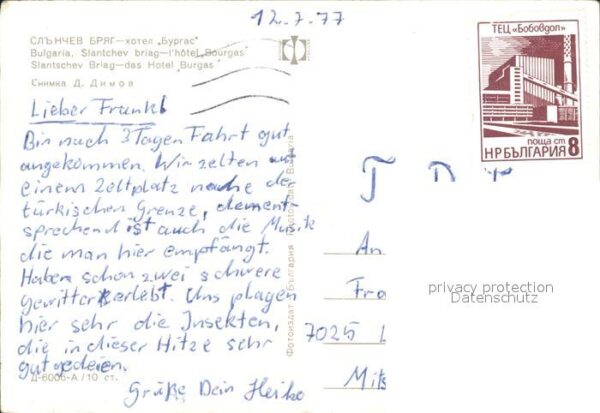 12.7.77
СЛЪНЧЕВ БРЯГ—хотел „Бургас"
Bulgaria, Slantchev briag—l'hôtel Bourgas
Slantschev Briag—das Hotel „Burgas"
Снимка Д. Димов
ТЕЦ «Бобовдол»
поща ст 8
НРБЪЛГАРИЯ
Lieber Frank!
Bin nach 3 Tagen Fahrt gut
angekommen. Wir zelten auf
einem Zeltplatz nahe de
türkischen Grenze, dement-
sprechend ist auch die Musik
die man hier empfängt.
Haben schon zwei schwere
Gewitter erlebt. Uns plagen
hier sehr die Insekten,
die in dieser Hitze sehr
gut gedeien.
Grüße Dein Heiko
Д-6006-А/10 ст.
Фотоиздат България
An
Fra
7025 L
Mits
privacy protection
Datenschutz